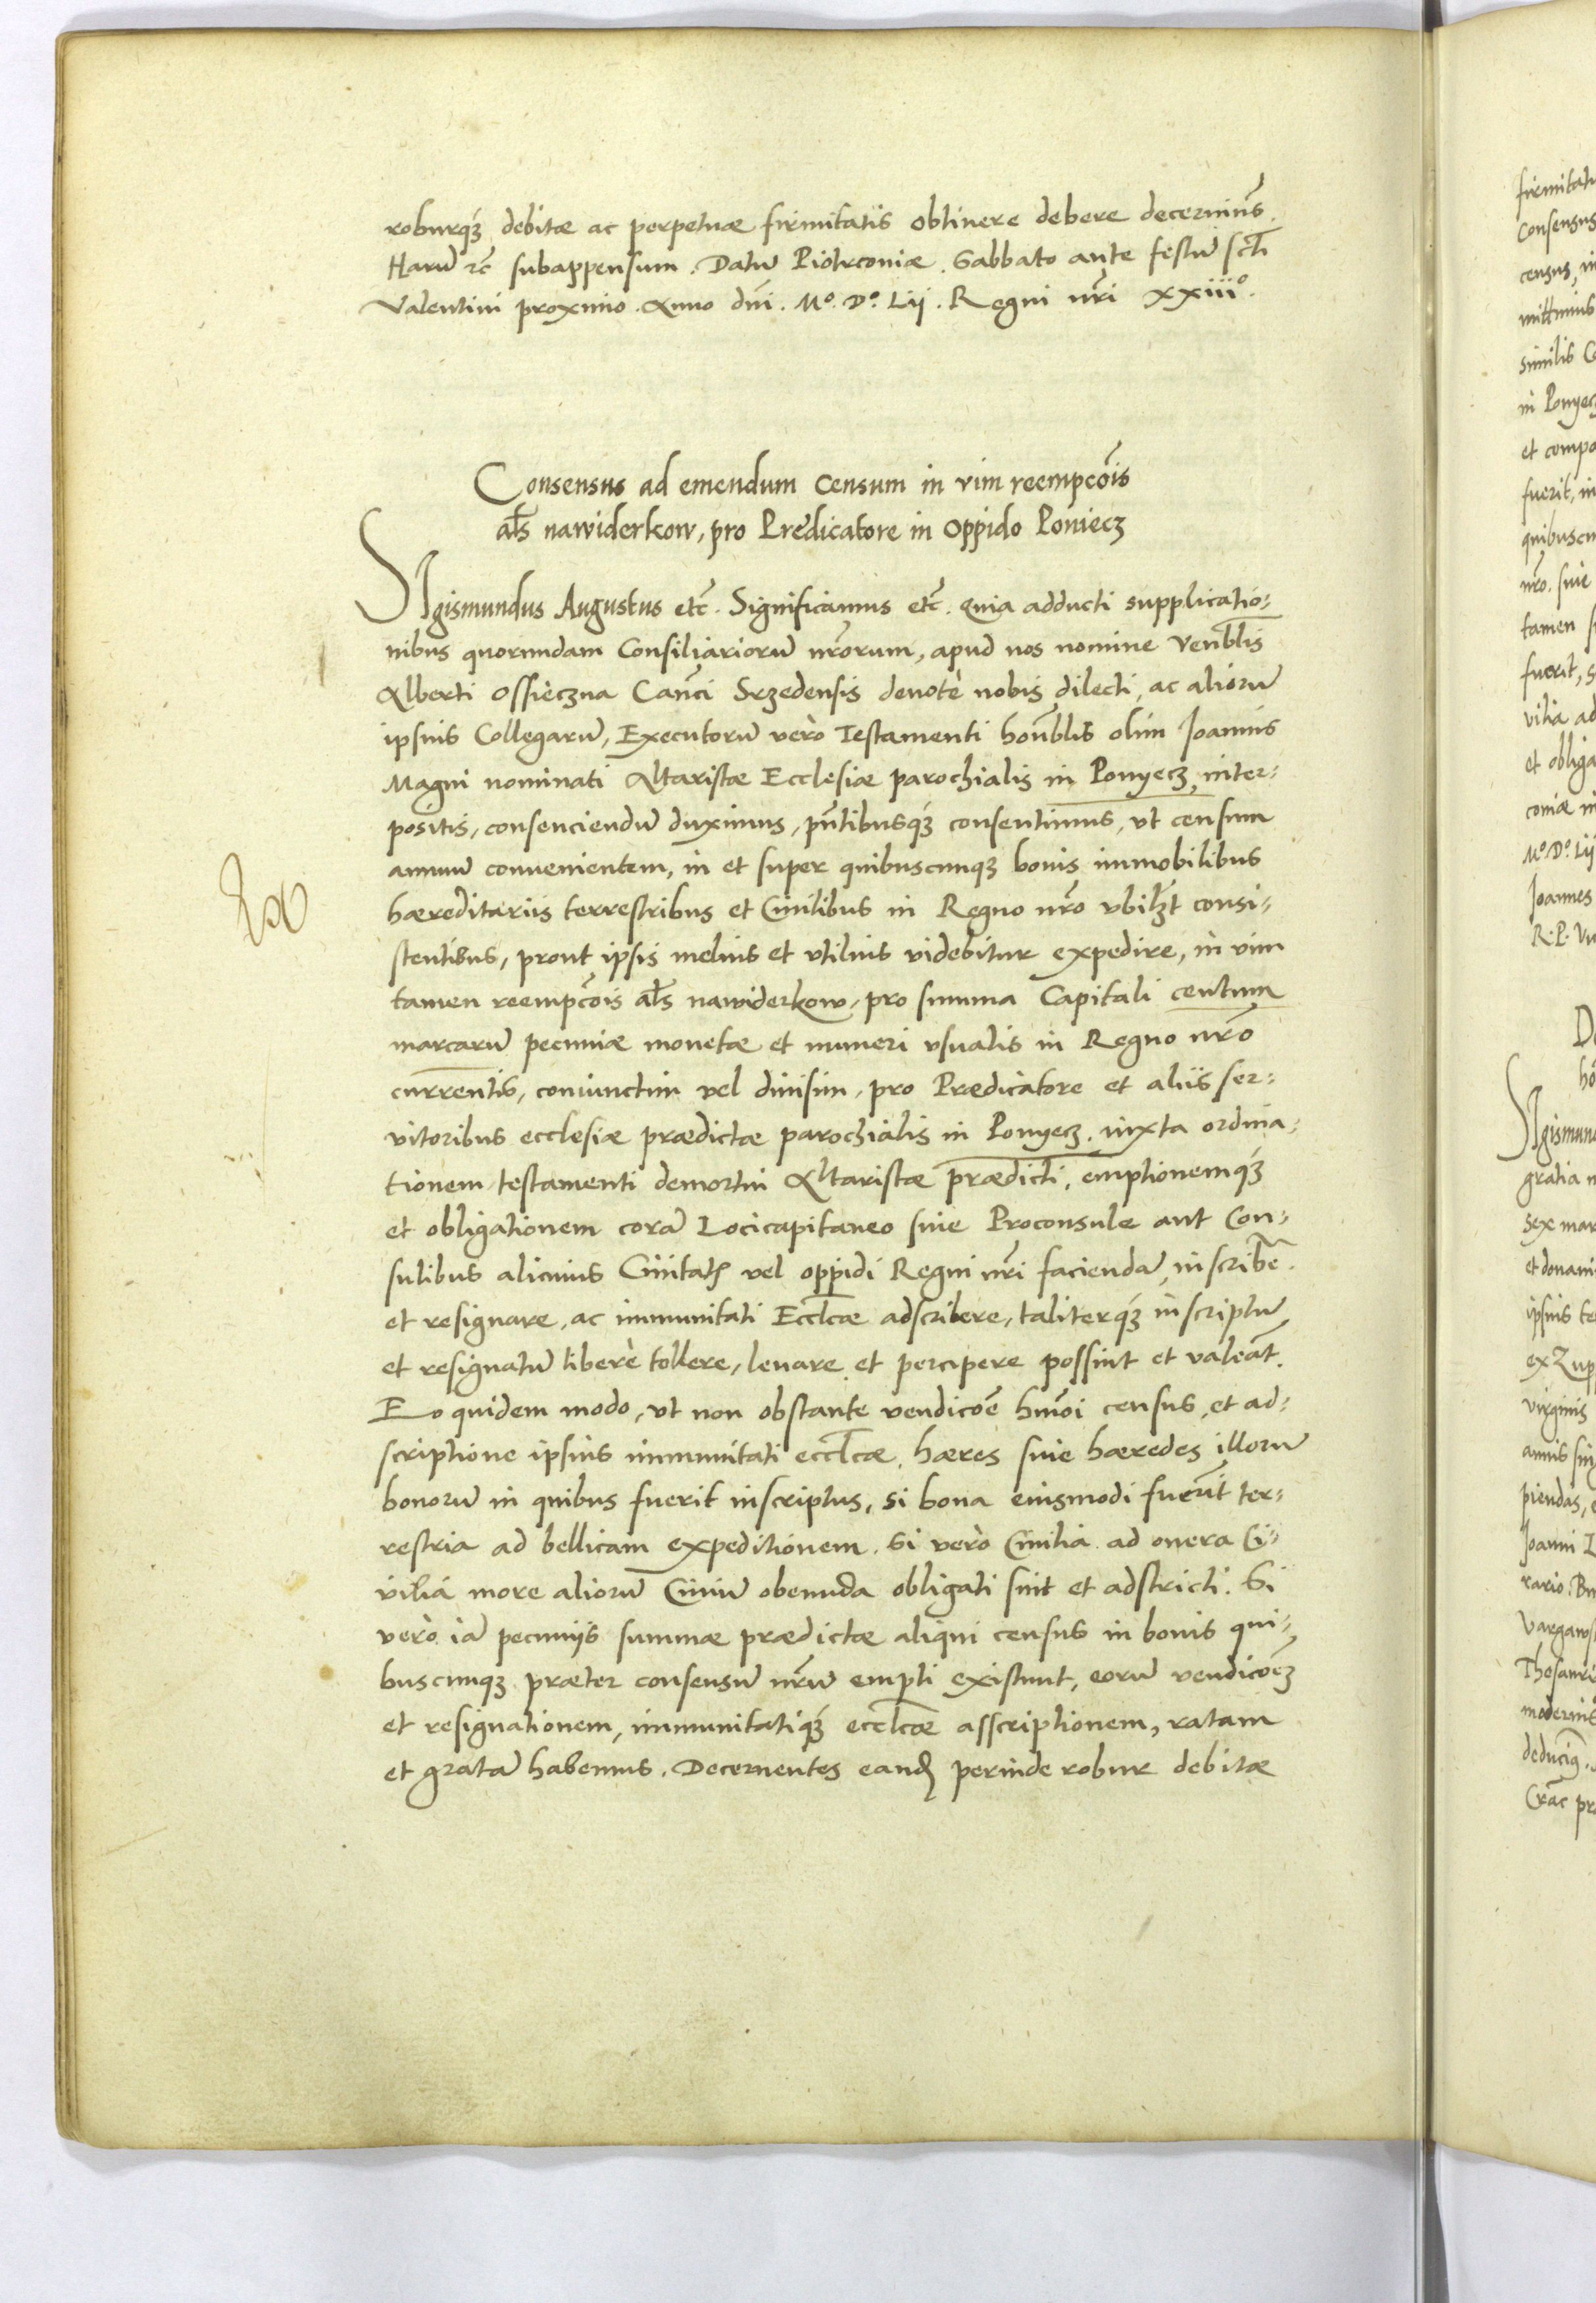 roburq́ꝫ debitæ ac perpetuæ firmitatis obtinere debere decernim̄s.
Harū rc̄ subappensum. Datū Piotrconiæ. Sabbato ante festū sct̄i
Valentini proximo. Anno dn̄i. Mº. Dº. Lij. Regni nr̄i xxiiiº.
Consensus ad emendum censum in vim reempcōis
al̄s nawiderkow, pro Predicatore in Oppido Poniecz
Sigismundus Augustus etc̄. Significamus etc̄. Quia adducti supplicatio-
nibus quorundam Consiliariorū nr̄orum, apud nos nomine Venbl̄is
Alberti Ossieczna Can̄ci Srzedensis deuotè nobis dilecti, ac aliorū
ipsius Collegarū, Executorū verò Testamenti honbl̄is olim Joannis
Magni nominati Altaristæ Ecclesiæ parochialis in Ponyecz, inter-
positis, consenciendū duximus, pn̄tibusq́ꝫ consentimus, vt censum
annuū conuenientem, in et super quibuscunqꝫ bonis immobilibus
hæreditariis terrestribus et Ciuilibus in Regno nr̄o vbilꝫt consi-
stentibus, prout ipsis melius et vtilius videbitur expedire, in vim
tamen reempcōis al̄s nawiderkow, pro summa Capitali centum
marcarū pecuniæ monetæ et numeri vsualis in Regno nr̄o
currentis, coniunctim vel diuisim, pro Prædicatore et aliis ser-
vitoribus ecclesiæ prædictæ parochialis in Ponyecz. iuxta ordina-
tionem testamenti demortui Altaristæ prædicti, emptionemq́ꝫ
et obligationem corā Locicapitaneo siue Proconsule aut Con-
sulibus alicuius Ciuitatꝭ vel oppidi Regni nr̄i faciendā, inscribe͂.
et resignare, ac immunitati Eccl̄cæ adscribere, taliterq́ꝫ inscriptū
et resignatū liberè tollere, leuare et percipere possint et valeāt.
Eo quidem modo, vt non obstante vendicōe hmōi census, et ad-
scriptione ipsius immunitati eccl̄cæ, hæres siue hæredes illorū
bonorū in quibus fuerit inscriptus, si bona eiusmodi fuerīt ter-
restria ad bellicam expeditionem. Si verò Ciuilia ad onera Ci-
vilia more aliorū Ciuiū obeunda obligati sint et adstricti. Si
verò iā pecuniis summæ prædictæ aliqui census in bonis qui-
buscunqꝫ præter consensū nr̄ū empti existunt, eorū vendicōeꝫ
et resignationem, immunitatiq́ꝫ eccl̄cæ asscriptionem, ratam
et gratā habemus. Decernentes eandꝫ perinde robur debitæ